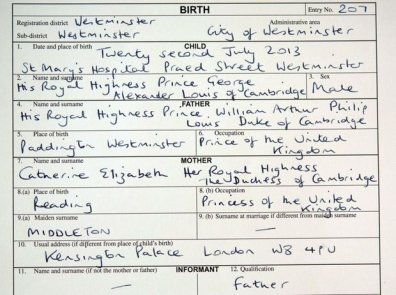 BIRTH
Entry No. 207
Registration district Westminster
Administrative area
Sub-district Westminster
City of Westminster
CHILD
1. Date and place of birth
Twenty second July 2013
St Mary's Hospital Praed Street Westminster
2. Name and surname
3. Sex
His Royal Highness Prince George
Alexander Louis of Cambridge
Male
FATHER
4. Name and surname
His Royal Highness Prince William Arthur Philip
Louis Duke of Cambridge
5. Place of birth
6. Occupation
Paddington Westminster
Prince of the United
Kingdom
MOTHER
7. Name and surname
Catherine Elizabeth Her Royal Highness
The Duchess of Cambridge
8.(a) Place of birth
8. (b) Occupation
Reading
Princess of the United
Kingdom
9.(a) Maiden surname
9. (b) Surname at marriage if different from maiden surname
MIDDLETON
—
10. Usual address (if different from place of child's birth)
Kensington Palace London W8 4PU
INFORMANT
11. Name and surname (if not the mother or father)
12. Qualification
—
Father